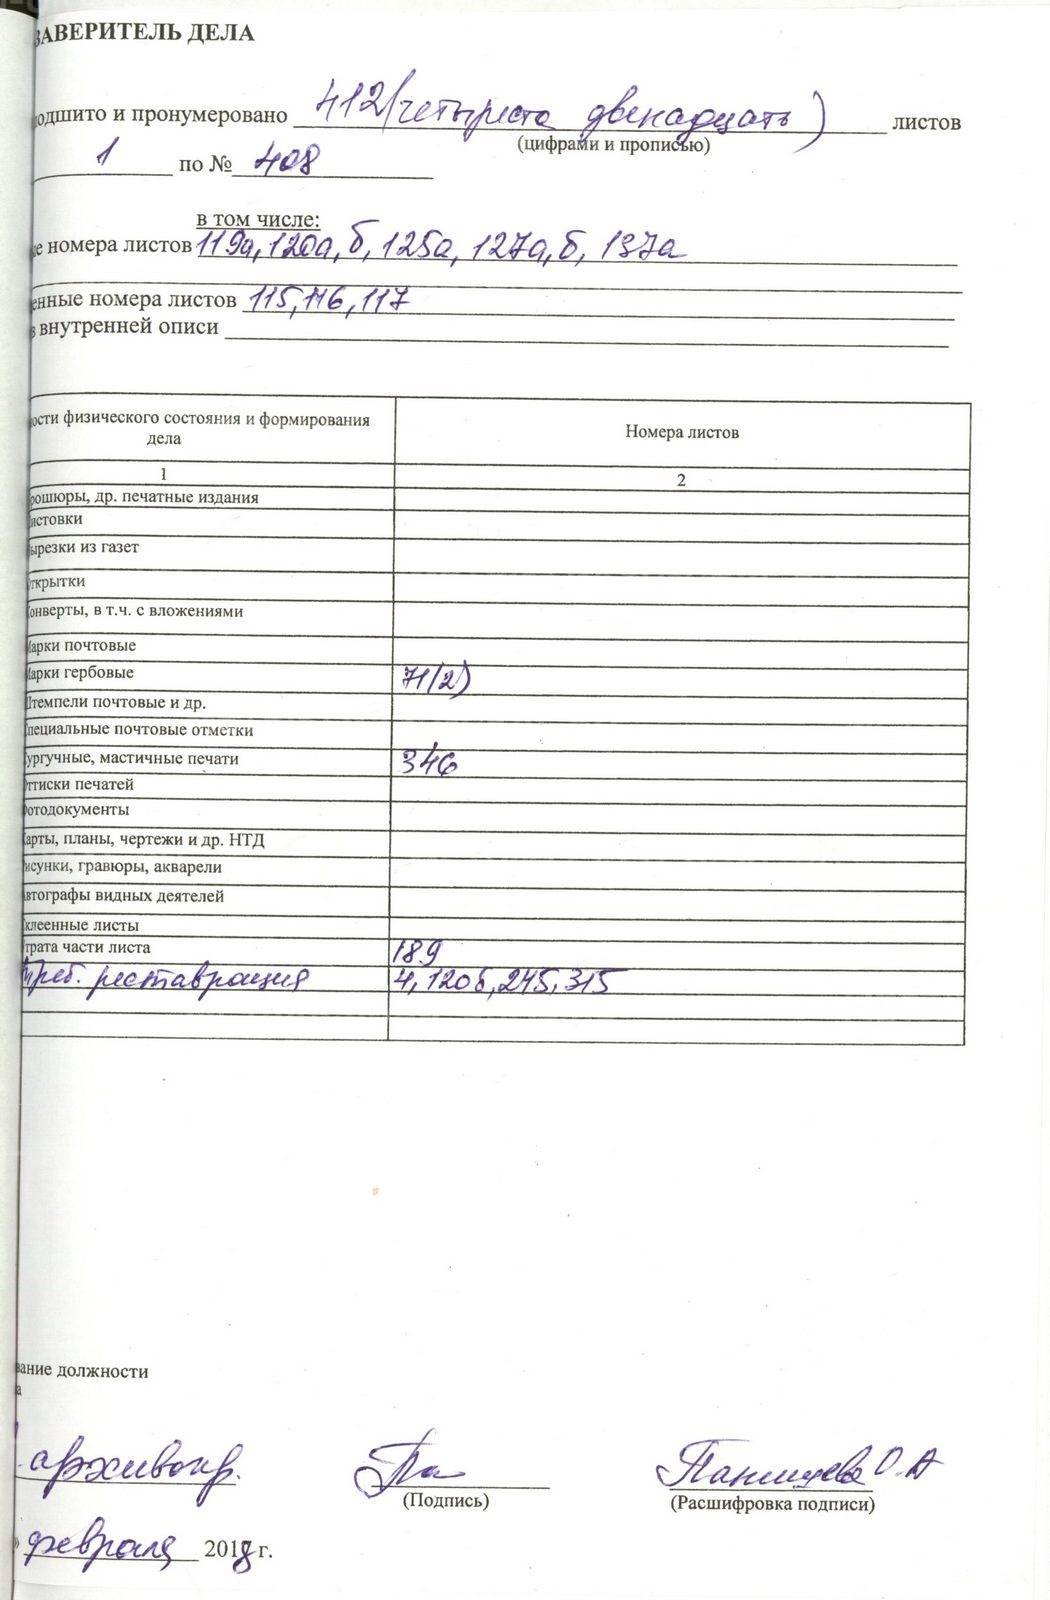 ЗАВЕРИТЕЛЬ ДЕЛА
одшито и пронумеровано 412(четыреста двенадцать) листов
(цифрами и прописью)
1 по № 408
в том числе:
е номера листов 119а, 120а, б, 125а, 127а, б, 137а
енные номера листов 115, 116, 117
в внутренней описи
ости физического состояния и формирования дела Номера листов
1 2
рошюры, др. печатные издания
истовки
ырезки из газет
ткрытки
Конверты, в т.ч. с вложениями
Марки почтовые
Марки гербовые 71(2)
Штемпели почтовые и др.
Специальные почтовые отметки
ургучные, мастичные печати 346
ттиски печатей
Фотодокументы
Карты, планы, чертежи и др. НТД
исунки, гравюры, акварели
Автографы видных деятелей
Склеенные листы
трата части листа 189
треб. реставрация 4, 120б, 245, 315
вание должности
а
архивохр.
(Подпись) (Расшифровка подписи)
» февраля 2018 г.